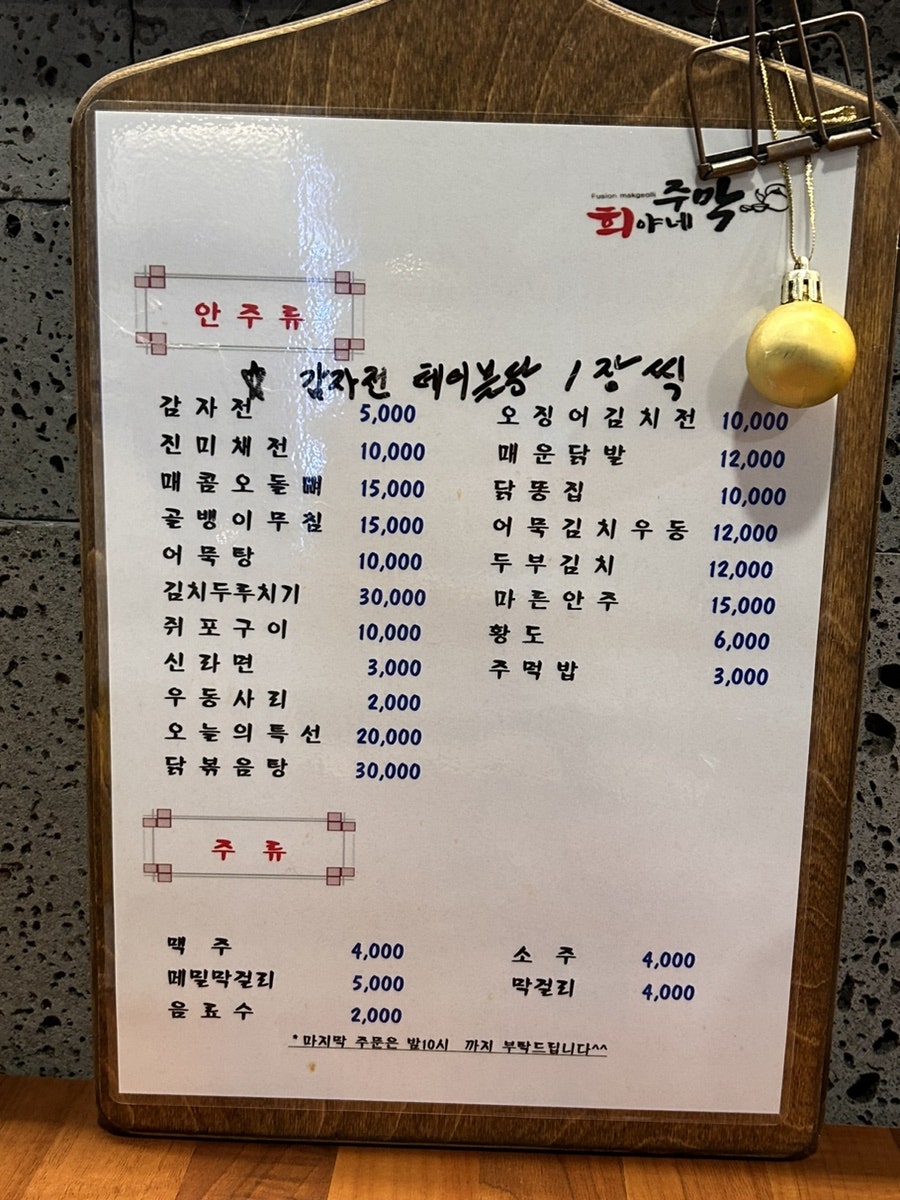 Fusion makgeolli
회야네 주막
안주류
☆ 감자전 테이블당 1장씩
감자전 5,000
오징어김치전 10,000
진미채전 10,000
매운닭발 12,000
매콤오돌뼈 15,000
닭똥집 10,000
골뱅이무침 15,000
어묵김치우동 12,000
어묵탕 10,000
두부김치 12,000
김치두루치기 30,000
마른안주 15,000
쥐포구이 10,000
황도 6,000
신라면 3,000
주먹밥 3,000
우동사리 2,000
오늘의특선 20,000
닭볶음탕 30,000
주류
맥주 4,000
소주 4,000
메밀막걸리 5,000
막걸리 4,000
음료수 2,000
*마지막 주문은 밤10시 까지 부탁드립니다^^